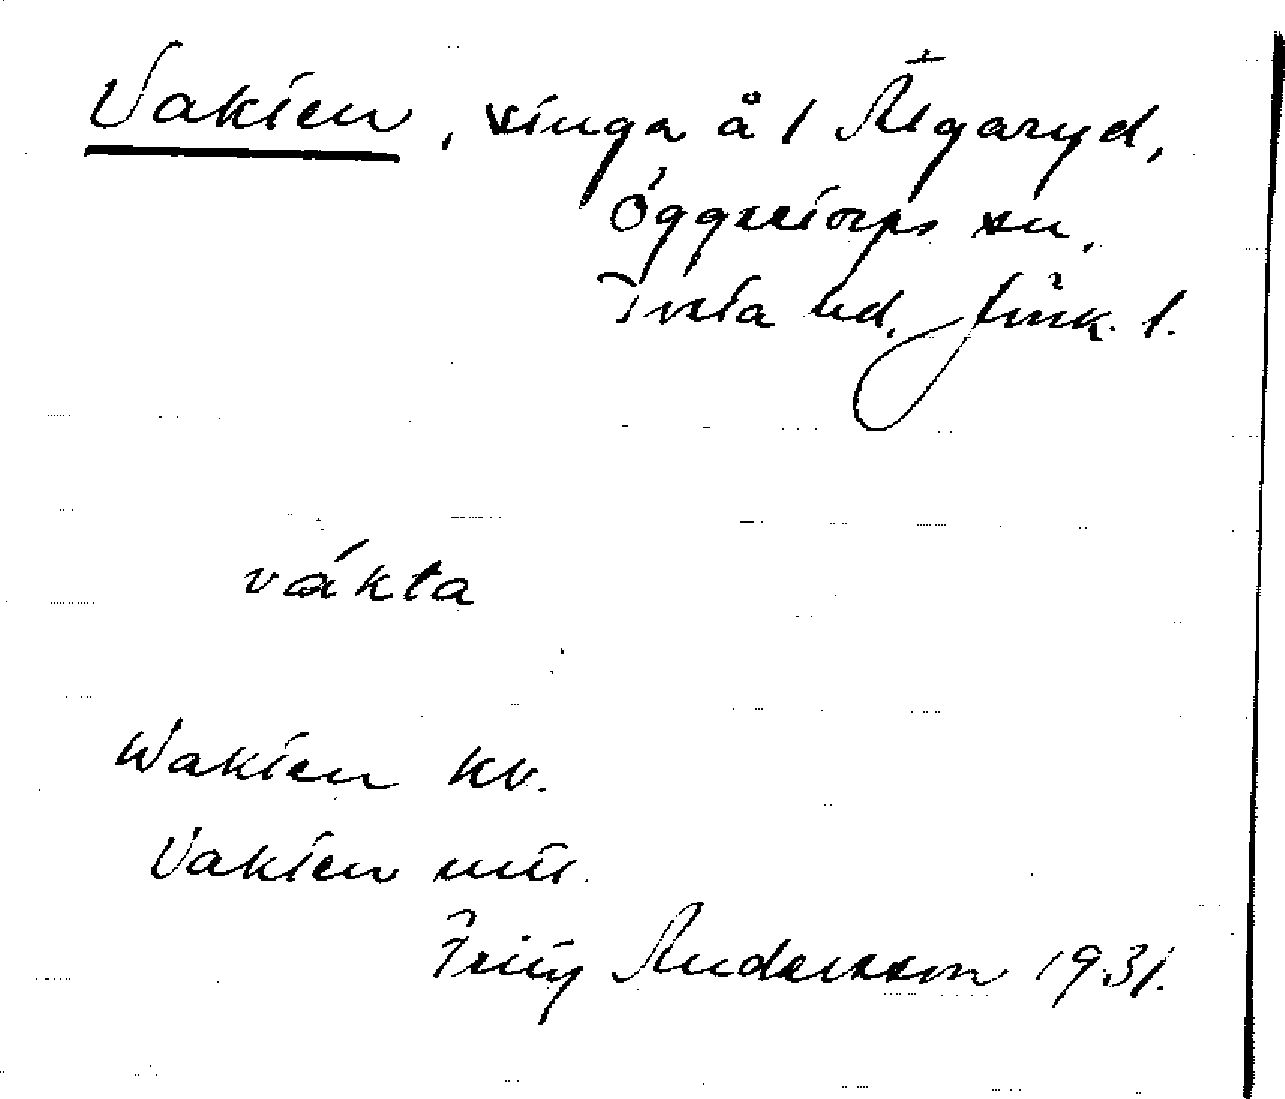 Vakten, stuga å 1 Älgaryd,
Öggestorps sn,
Tveta hd, Jönk. l.
vákta
Wakten kv.
Vakten
Fritz Andersson 1931.